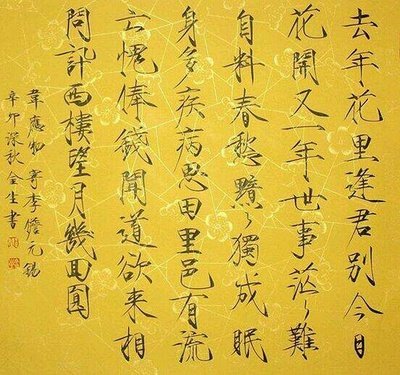 去年花里逢君別今日
花開又一年世事茫々難
自料春愁黯々獨成眠
身多疾病思田里邑有流
亡愧俸錢聞道欲來相
問訊西樓望月幾回圓
韋應物寄李儋元錫
辛卯深秋全生書